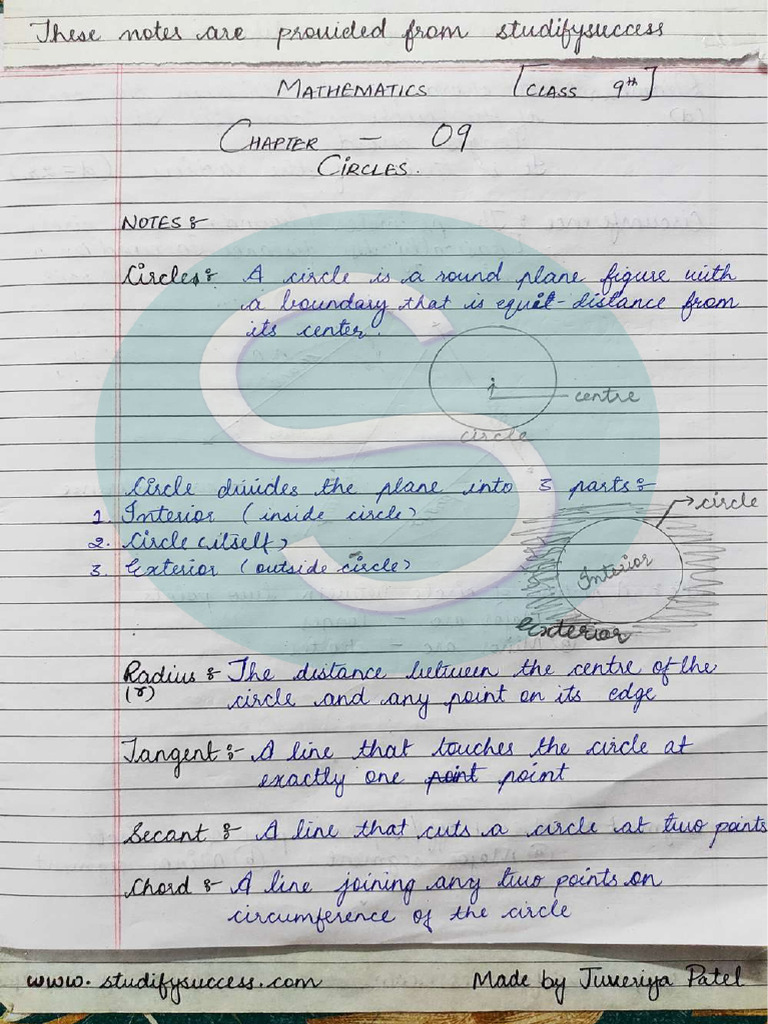 These notes are provided from studifysuccess
MATHEMATICS [CLASS 9th]
CHAPTER - 09
CIRCLES.
NOTES :-
Circles :- A circle is a round plane figure with
a boundary that is equi-distance from
its center.
centre
circle
Circle divides the plane into 3 parts :-
1. Interior (inside circle)
2. Circle (itself)
3. Exterior (outside circle)
circle
Interior
Exterior
Radius :- The distance between the centre of the
(r) circle and any point on its edge
Tangent :- A line that touches the circle at
exactly one point point
Secant :- A line that cuts a circle at two points
Chord :- A line joining any two points on
circumference of the circle
www.studifysuccess.com Made by Juveriya Patel